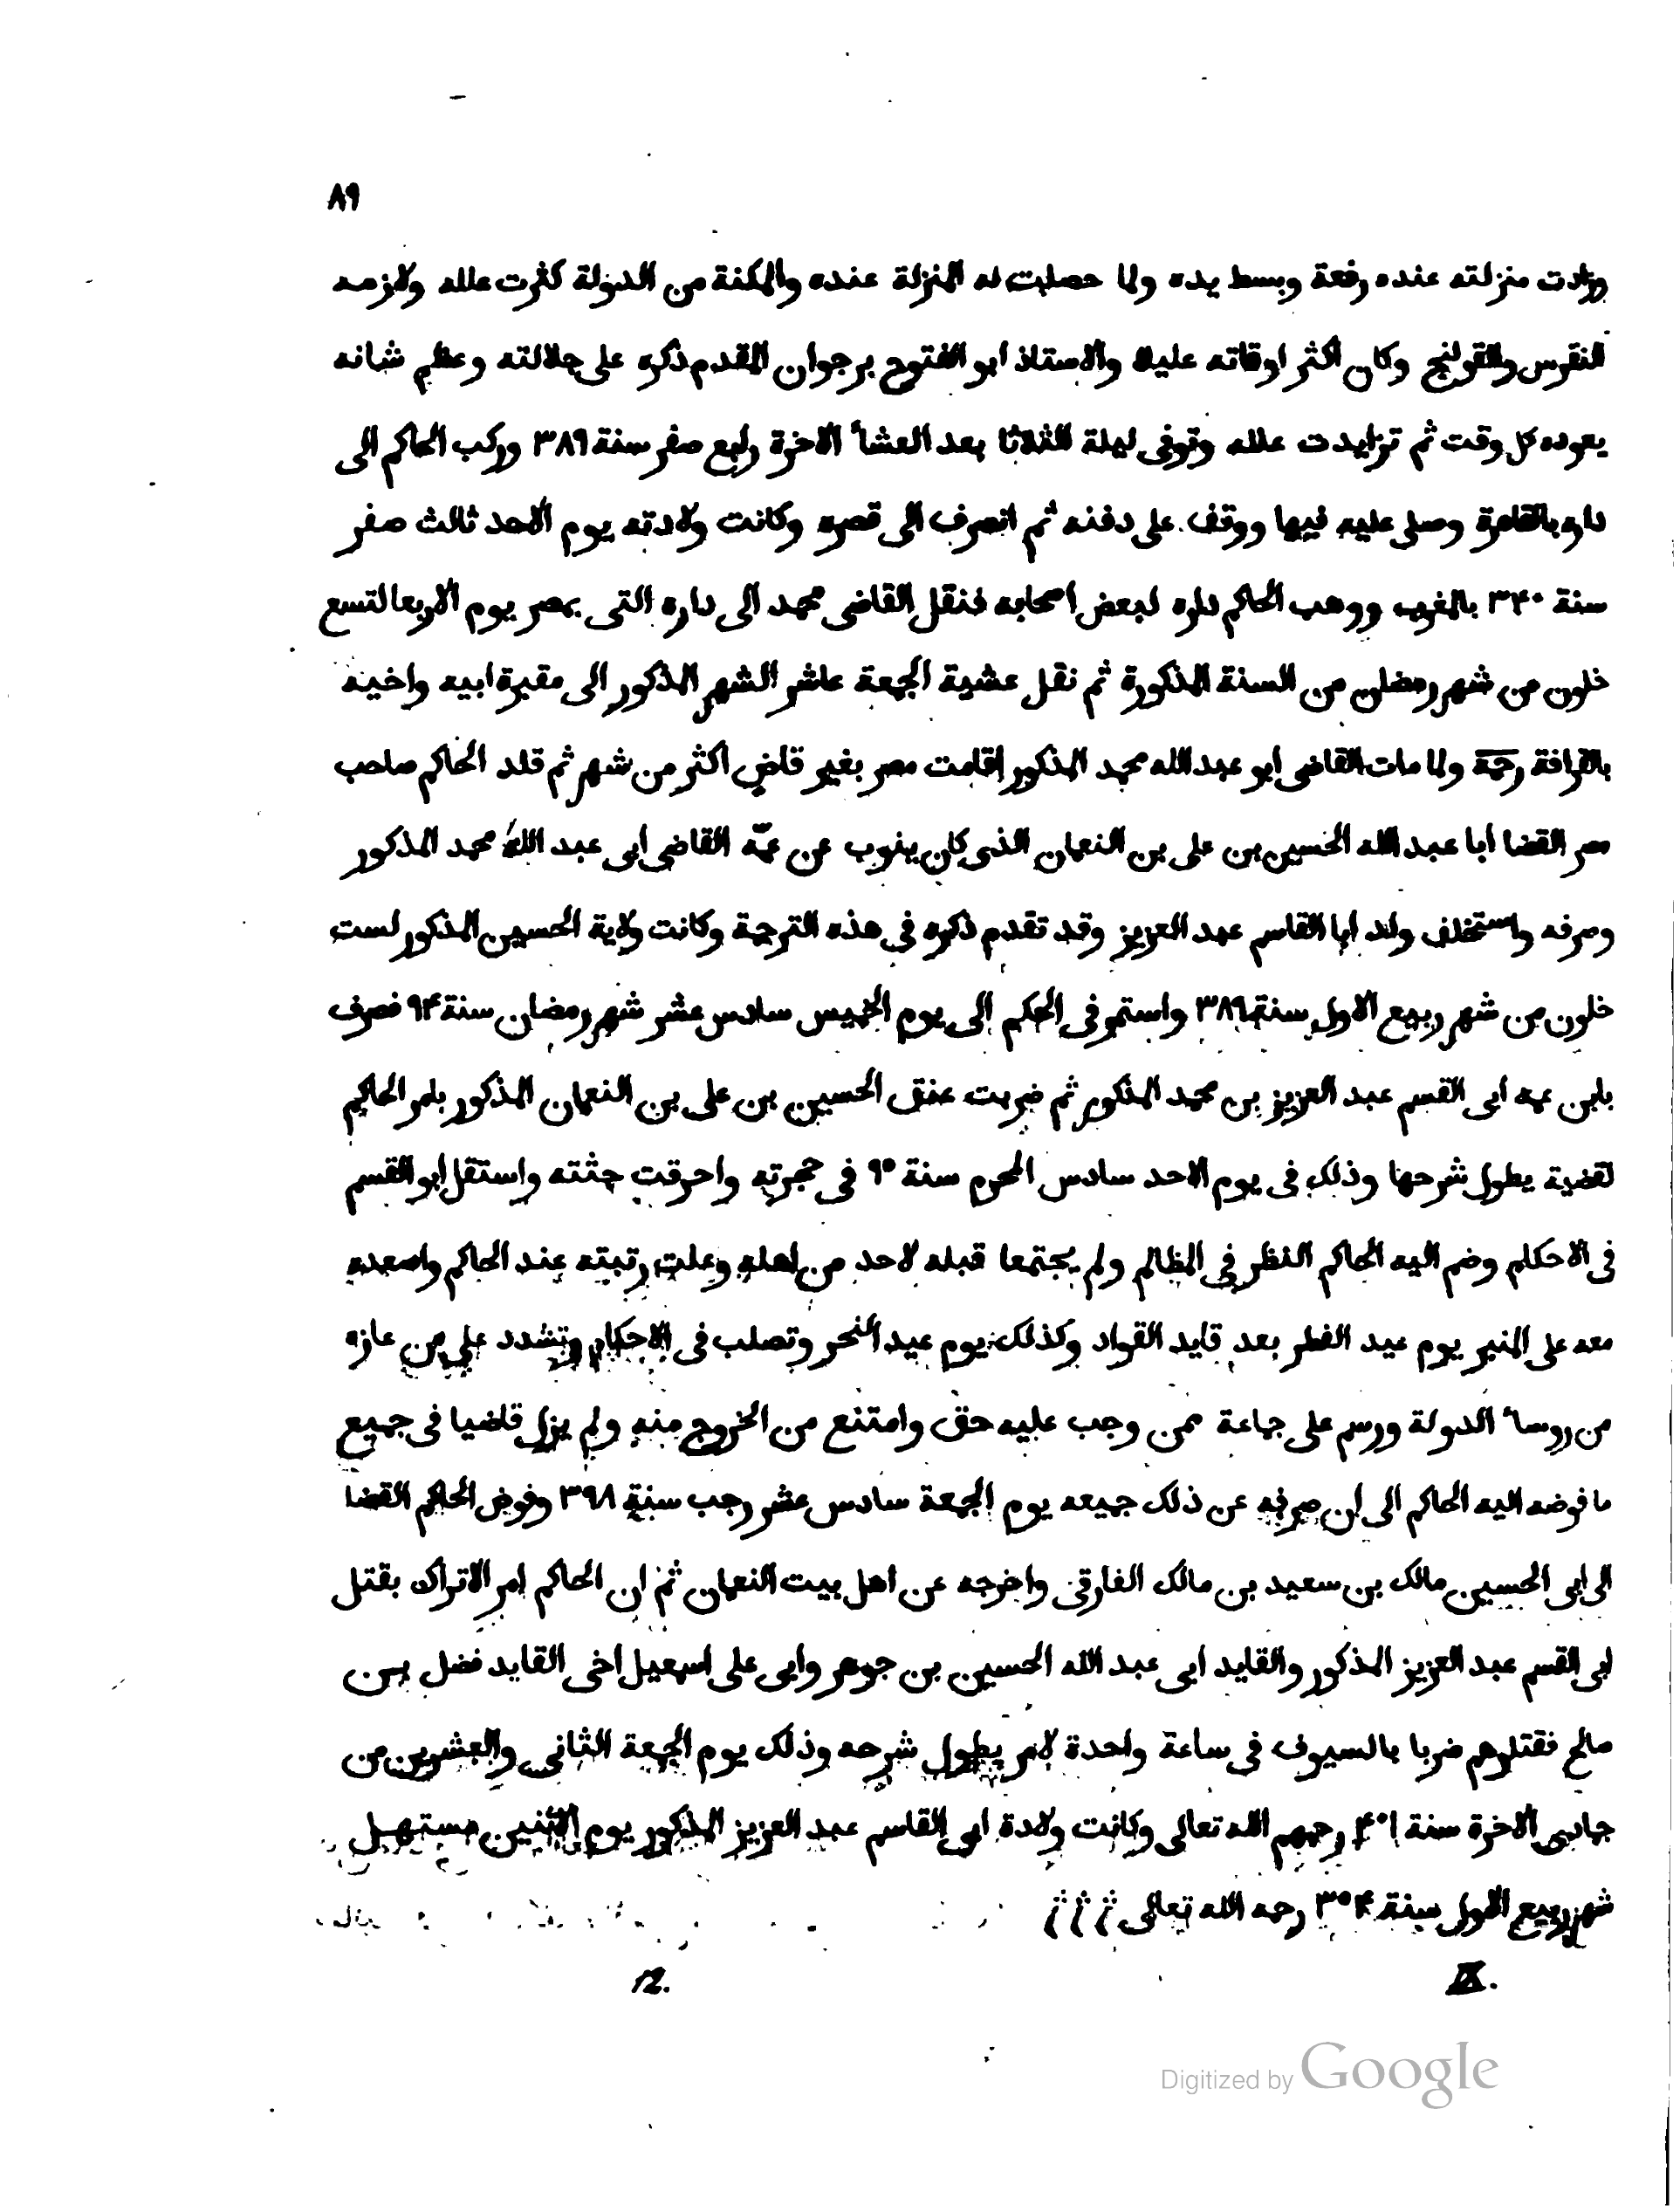 ٨٩
وزادت منزلته عنده رفعة وبسط يده ولما حصلت له المنزلة عنده والمكنة من الدولة كثرت علله ولازمه
النقرس والقولنج وكان اكثر اوقاته عليلا والاستاذ ابو الفتوح برجوان المقدم ذكره على جلالته وعظم شانه
يعوده كل وقت ثم تزايدت علله وتوفى ليلة الثلاثا بعد العشاء الاخرة رابع صفر سنة ٣٨٩ وركب الحاكم الى
داره بالقاهرة وصلى عليه فيها ووقف على دفنه ثم انصرف الى قصره وكانت ولادته يوم الاحد ثالث صفر
سنة ٣٤٠ بالمغرب ووهب الحاكم داره لبعض اصحابه فنقل القاضى محمد الى داره التى بمصر يوم الاربعا لتسع
خلون من شهر رمضان من السنة المذكورة ثم نقل عشية الجمعة عاشر الشهر المذكور الى مقبرة ابيه واخيه
بالقرافة رحمة ولما مات القاضى ابو عبد الله محمد المذكور اقامت مصر بغير قاض اكثر من شهر ثم قلد الحاكم صاحب
مصر القضا ابا عبد الله الحسين بن على بن النعمان الذى كان ينوب عن عمّه القاضى ابى عبد الله محمد المذكور
وصرفه واستخلف ولده ابا القاسم عبد العزيز وقد تقدم ذكره فى هذه الترجمة وكانت ولاية الحسين المذكور لست
خلون من شهر ربيع الاول سنة ٣٨٩ واستمر فى الحكم الى يوم الخميس سادس عشر شهر رمضان سنة ٩٤ فصرف
بابن عمه ابى القسم عبد العزيز بن محمد المذكور ثم ضربت عنق الحسين بن على بن النعمان المذكور بامر الحاكم
لقضية يطول شرحها وذلك فى يوم الاحد سادس المحرم سنة ٩٥ فى حجرته واحرقت جثته واستقل ابو القسم
فى الاحكام وضم اليه الحاكم النظر فى المظالم ولم يجتمعا قبله لاحد من اهله وعلت رتبته عند الحاكم واصعده
معه على المنبر يوم عيد الفطر بعد قايد القواد وكذلك يوم عيد النحر وتصلب فى الاحكام وتشدد على من عازه
من روساء الدولة ورسم على جماعة ممن وجب عليه حق وامتنع من الخروج منه ولم يزل قاضيا فى جميع
ما فوضه اليه الحاكم الى ان صرفه عن ذلك جميعه يوم الجمعة سادس عشر رجب سنة ٣٩٨ وفوض الحاكم القضا
الى ابى الحسين مالك بن سعيد بن مالك الفارقى واخرجه عن اهل بيت النعمان ثم ان الحاكم امر الاتراك بقتل
ابى القسم عبد العزيز المذكور والقايد ابى عبد الله الحسين بن جوهر وابى على اسمعيل اخى القايد فضل بن
صالح فقتلوهم ضربا بالسيوف فى ساعة واحدة لامر يطول شرحه وذلك يوم الجمعة الثانى والعشرين من
جمادى الاخرة سنة ٤٠١ رحمهم الله تعالى وكانت ولادة ابى القاسم عبد العزيز المذكور يوم الاثنين مستهل
شهر ربيع الاول سنة ٣٥٤ رحمه الله تعالى
IX. 12.
Digitized by Google